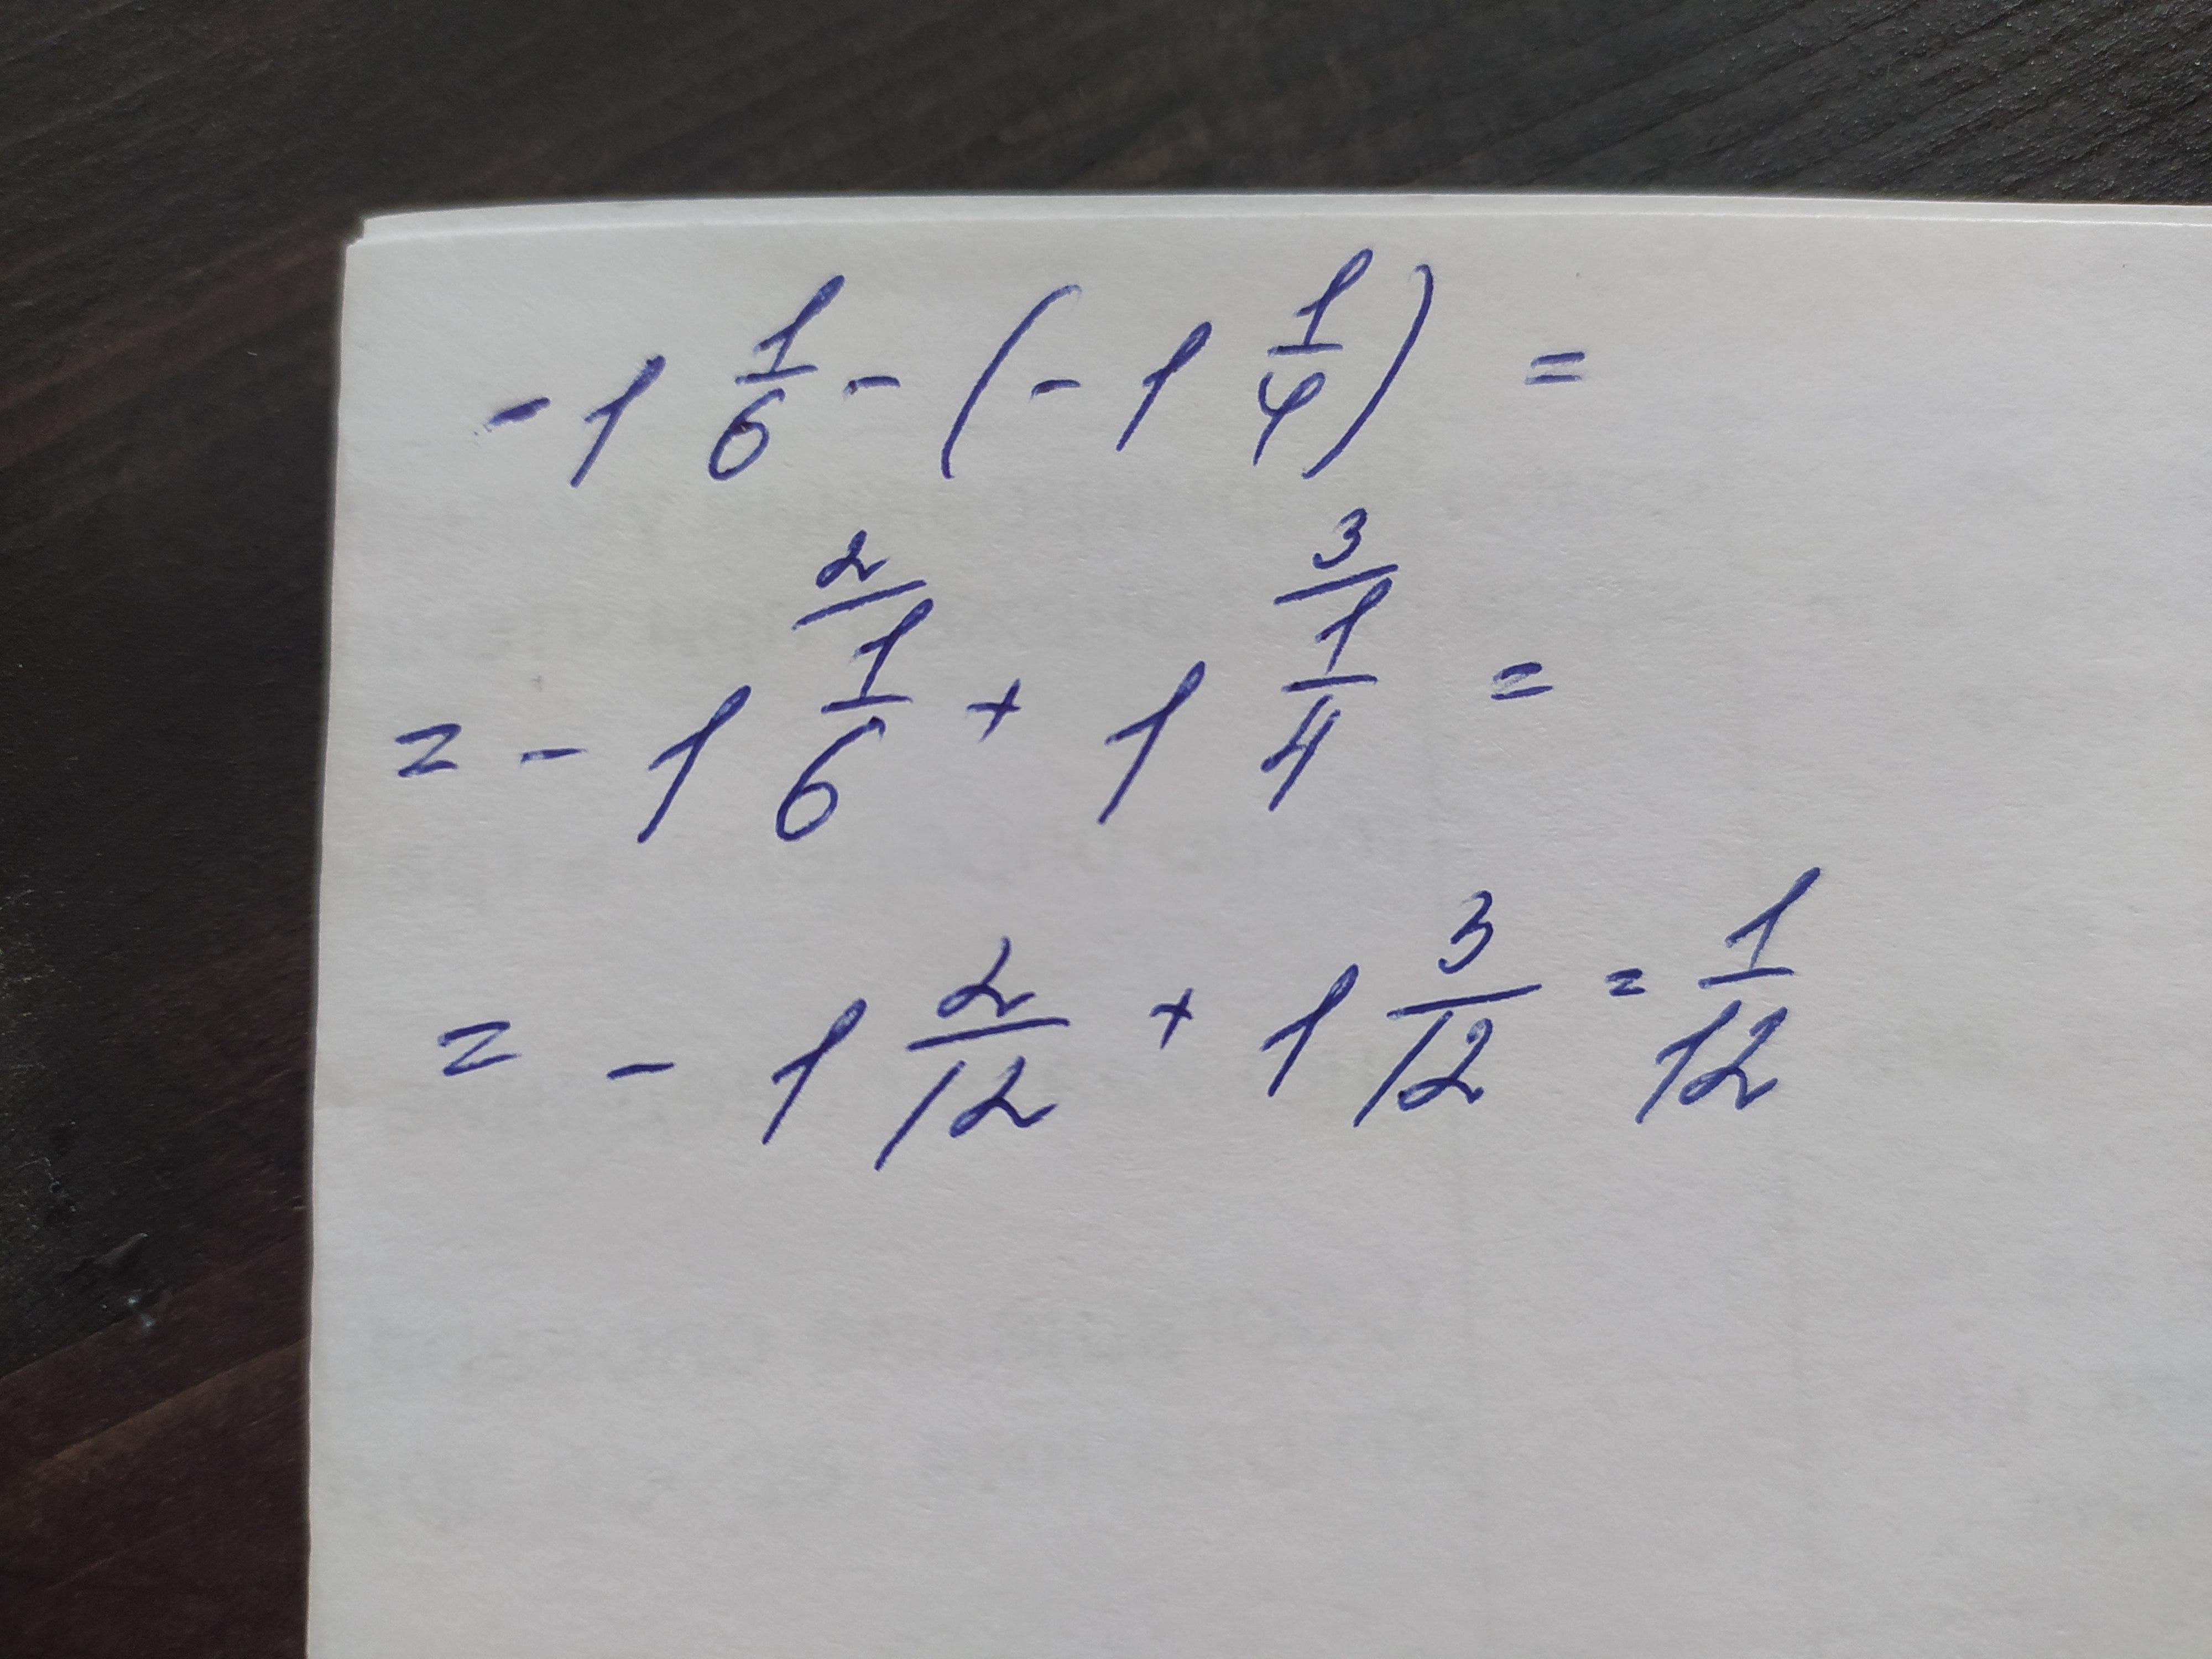 -1 1/6 - (-1 1/4) =
= -1 2/ 1/6 + 1 3/ 1/4 =
= -1 2/12 + 1 3/12 = 1/12